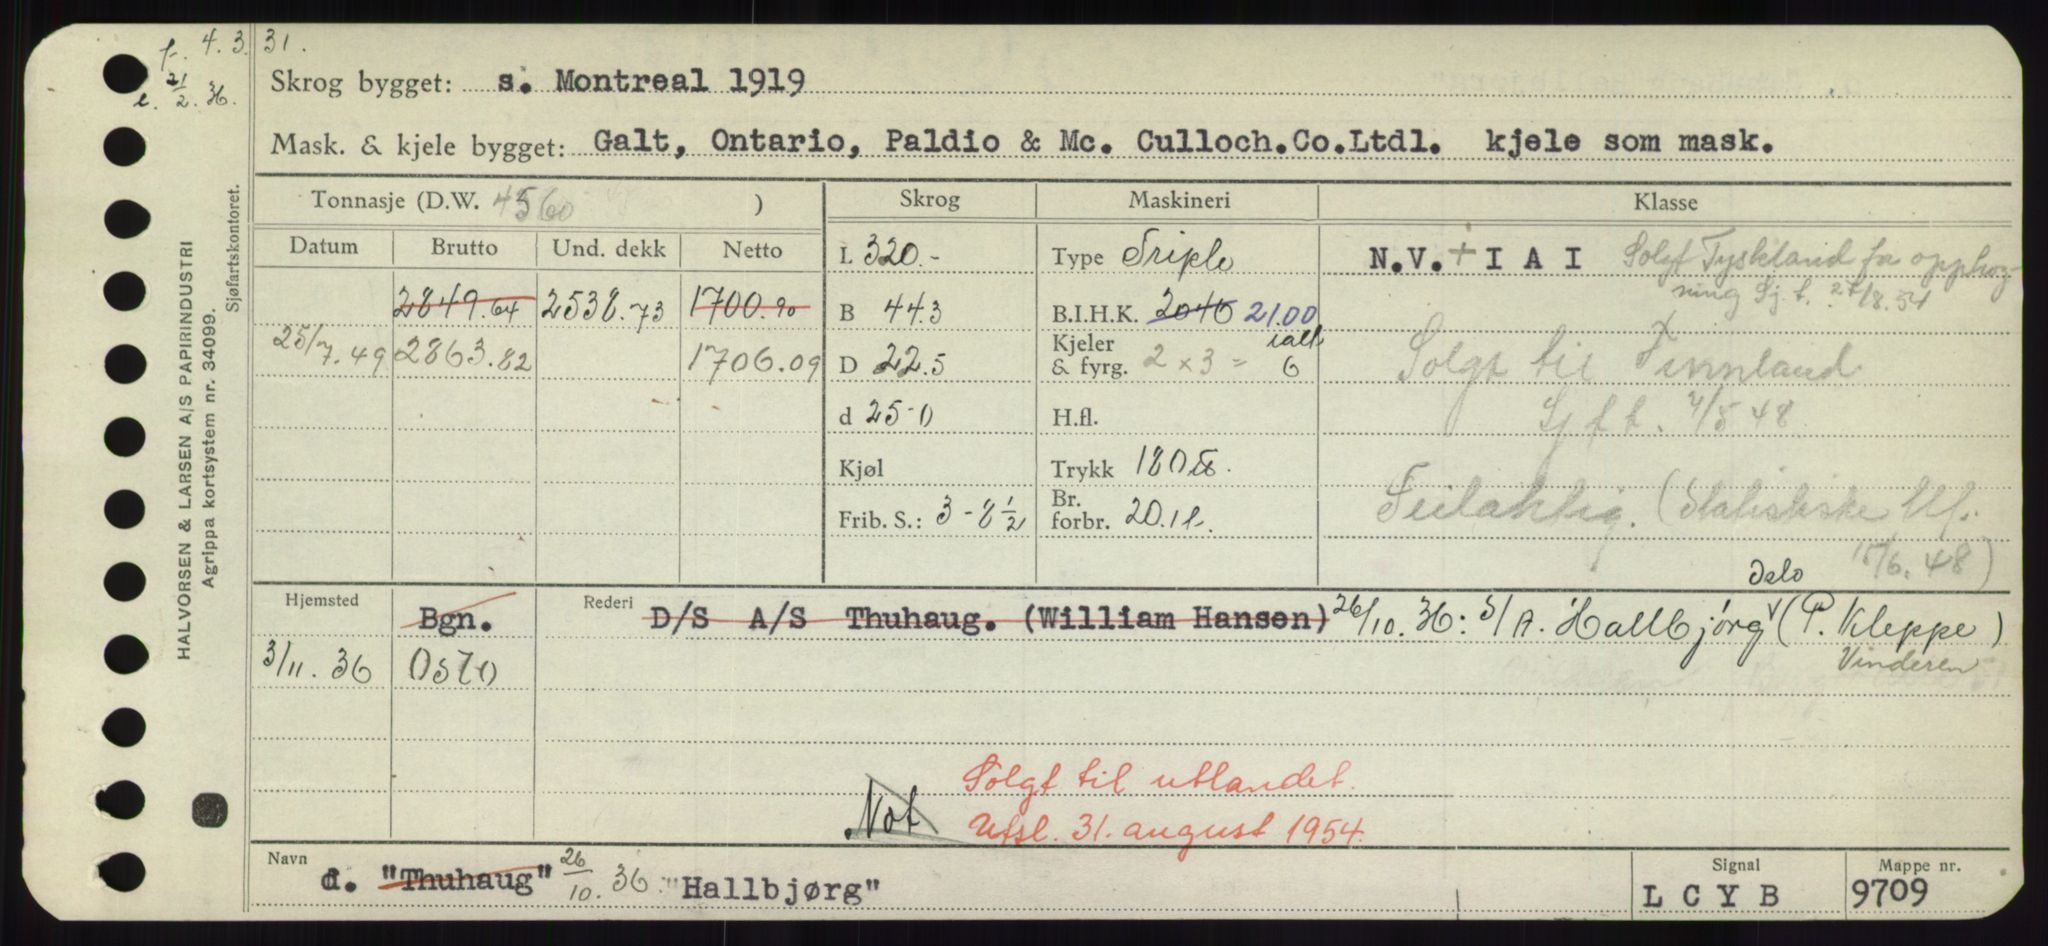 f. 4.3.31.
e. 21/2.36.
Skrog bygget: s. Montreal 1919
Mask. & kjele bygget: Galt, Ontario, Paldio & Mc. Culloch.Co.Ltdl. kjele som mask.
Tonnasje (D.W. 4560 )
Skrog
Maskineri
Klasse
Datum
Brutto
Und. dekk
Netto
2849.64 2538.73 1700.90
25/7.49 2863.82 1706.09
L 320.-
B 44.3
D 22.5
d 25-0
Kjøl
Frib. S.: 3-8 1/2
Type Triple
B.I.H.K. 2040 2100
Kjeler ialt
& fyrg. 2 x 3 = 6
H.fl.
Trykk 180 lb.
Br.
forbr. 20.
N.V. + I A I Solgt Tyskland for opphog-
ning Sj.t. 27/8.54
Solgt til Finnland
Sjft. 4/5 48
Seilaktig. (Statistiske Utf.
15/6. 48)
Hjemsted
Bgn.
3/11. 36 Oslo
Rederi D/S A/S Thuhaug. (William Hansen) 26/10. 36: S/A. Hallbjørg (P. Kleppe)
Oslo
Vinderen
Not
Solgt til utlandet.
Utsl. 31. august 1954.
Navn d. "Thuhaug" 26/10. 36. "Hallbjørg"
Signal
L C Y B
Mappe nr.
9709
HALVORSEN & LARSEN A/S PAPIRINDUSTRI
Agrippa kortsystem nr. 34099.
Sjøfartskontoret.